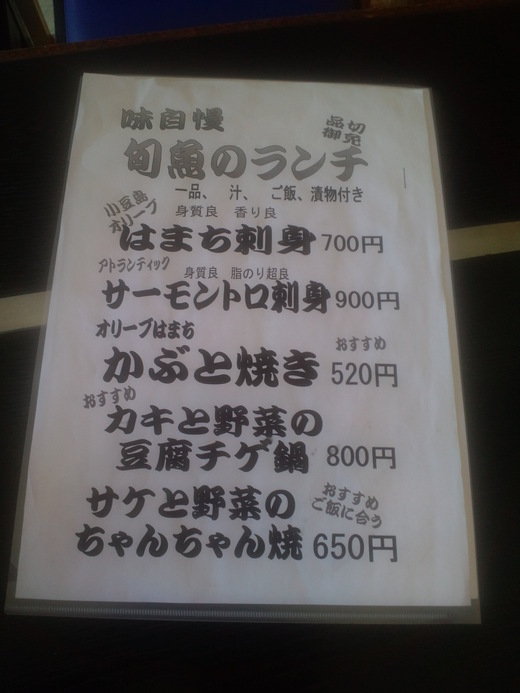 味自慢
品切
御免
旬魚のランチ
一品、 汁、 ご飯、漬物付き
小豆島
オリーブ
身質良 香り良
はまち刺身 700円
アトランティック
身質良 脂のり超良
サーモントロ刺身 900円
オリーブはまち
おすすめ
かぶと焼き 520円
おすすめ
カキと野菜の
豆腐チゲ鍋 800円
サケと野菜の
おすすめ
ご飯に合う
ちゃんちゃん焼 650円